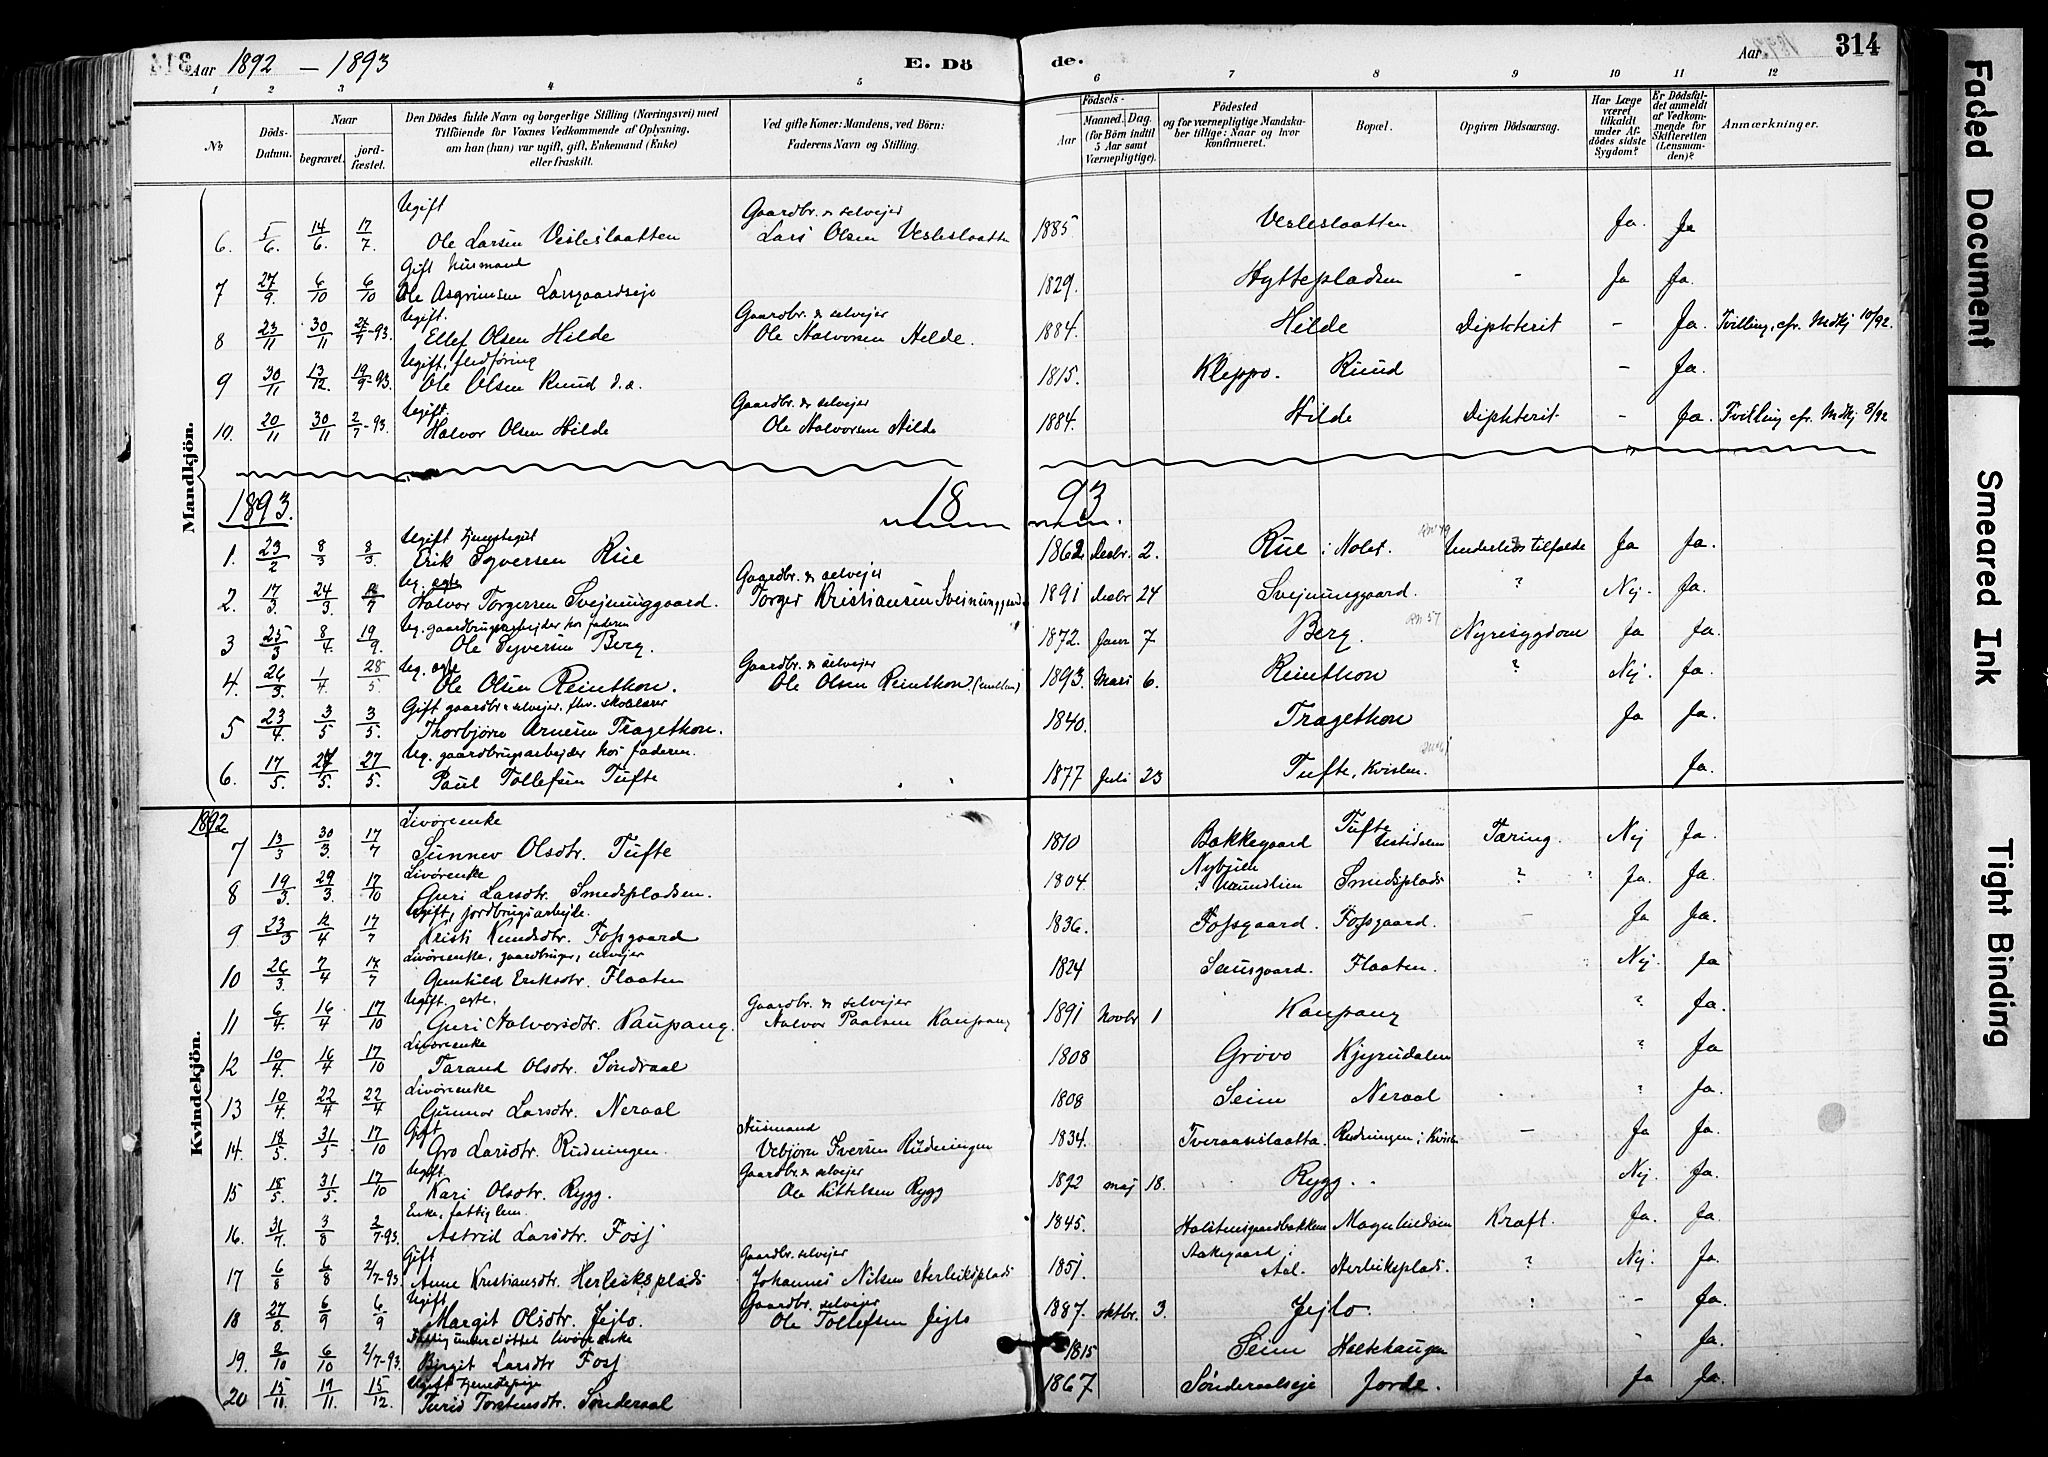 Aar 1892 – 1893
E. Dö de.
Aar
314
1 2 3 4 5 6 7 8 9 10 11 12
No
Döds-Datum.
Naar
begravet.
jord-fæstet.
Den Dödes fulde Navn og borgerlige Stilling (Næringsvei) med
Tilföiende for Voxnes Vedkommende af Oplysning,
om han (hun) var ugift, gift, Enkemand (Enke)
eller fraskilt.
Ved gifte Koner: Mandens, ved Börn:
Faderens Navn og Stilling.
Födsels-
Aar
Maaned. Dag.
(for Börn indtil
5 Aar samt
Værnepligtige).
Födested
og for værnepligtige Mandska-
ber tillige: Naar og hvor
konfirmeret.
Bopæl.
Opgiven Dödsaarsag.
Har Læge
været
tilkaldt
under Af-
dödes sidste
Sygdom?
Er Dödsfal-
det anmeldt
af Vedkom-
mende for
Skifteretten
(Lensman-
den)?
Anmærkninger.
Mandkjön.
Ugift Gaardbr. & selvejer
6. 5/6. 14/6. 17/7. Ole Larsen Vesleslaatten Lars Olsen Vesleslaatten 1885 Vesleslaatten Ja. Ja
Gift husmand
7 27/9. 6/10 6/10 Ole Asgrimsen Larsgaardseje 1829. Hyttepladsen - Ja Ja.
Ugift. Gaardbr. & selvejer
8 23/11 30/11 2/7-93. Ellef Olsen Hilde Ole Halvorsen Hilde. 1884. Hilde Diphterit - Ja. Tvilling, cfr. Mdkj 10/92.
Ugift, fledføring
9 30/11 13/12. 19/9-93. Ole Olsen Ruud d.a. 1815. Kleppo. Ruud - Ja.
Ugift. Gaardbr. & selvejer
10. 20/11 30/11 2/7-93. Halvor Olsen Hilde Ole Halvorsen Hilde 1884. Hilde Diphterit - Ja. Tvilling cfr. Mdkj 8/92
1893. 18 93
Ugift tjenestegut
1. 23/2 8/3 8/3. Erik Syversen Rue 1862 Decbr. 2. Rue i Holet. Underlivstilfælde Ja Ja.
Ug. ægte Gaardbr. & selvejer
2. 17/3. 24/3. 12/7 Halvor Torgersen Svejnunggaard. Torger Kristiansen Sveinunggaard 1891 Decbr 24 Svejnunggaard. ? Nej. Ja.
Ug. gaardbrugsarbejder hos faderen
3 25/3 8/4. 19/9. Ole Syversen Berg. 1872. Janr 7. Berg. Nyresygdom Ja Ja.
Ug. ægte Gaardbr. & selvejer
4. 26/3. 1/4. 28/5. Ole Olsen Reinthon. Ole Olsen Reinthon. 1893. Mars 6. Reinthon ? Nej. Ja.
Gift gaardbr & selvejer, fhv. skolelærer
5 23/4. 3/5 3/5. Thorbjørn Arnesen Tragethon. 1840. Tragethon Ja Ja.
Ug. gaardbrugsarbejder hos faderen.
6. 17/5. 27/5. 27/5. Paul Tollefsen Tufte 1877 Juli 23 Tufte, Kvislen. Ja.
Kvindekjön.
1892 Livøreenke
7 13/3 30/3. 17/7 Sunnev Olsdtr. Tufte 1810 Bakkegaard Tufte Lestedalen Tæring. Nej Ja.
Livøreenke
8 19/3. 29/3. 17/10 Guri Larsdtr. Smedspladsen. 1804. Nybjølen Smedsplads ? Ja. Ja.
Ugift, jordbrugsarbejde.
9 23/3 12/4 17/7 Kristi Knudsdtr. Fossgaard 1836. Fossgaard. Fossgaard. - Ja Ja.
Livøreenke, gaardbruger, selvejer
10 26/3. 7/4 17/7 Gunhild Eriksdtr. Flaaten 1824 Flaaten. Nej. Ja
Ugift. ægte. Gaardbr. & selvejer
11 6/4. 16/4 17/10 Guri Halvorsdtr. Kaupang. Halvor Paalsen Kaupang 1891 Novbr 1 Kaupang ? Ja.
Livøreenke
12 10/4. 16/4 17/10 Tarand Olsdtr. Søndraal 1808 Grøvo ? Ja
Livøreenke
13 10/4. 22/4 22/4 Gunnor Larsdtr. Neraal 1808 Seim Neraal ? Ja.
Gift Husmand
14. 18/5. 31/5 17/10 Gro Larsdtr. Rudningen. Vebjørn Iversen Rudningen 1834. Tveraaslaatta. Rudningen i Kvislen - Ja Ja.
Ugift. Gaardbr. & selvejer
15 18/5. 31/5. 17/10 Kari Olsdtr. Rygg. Ole Kittelsen Rygg 1892 maj 18. Rygg. Nej. Ja.
Enke, fattiglem.
16. 31/7. 3/8 2/7-93. Astrid Larsdtr. Foss 1845. Holstensgaardbakken Kræft. Ja. Ja.
Gift Gaardbr. selvejer
17 6/8 6/8 2/7-93. Anne Kristiansdtr. Herleiksplads Johannes Nilsen Herleiksplads 1851. Aakegaard i Aal. Herleiksplads. ? Nej. Ja.
Ugift Gaardbr. selvejer
18 27/8. 6/9 6/9 Margit Olsdtr. Jejlo. Ole Tollefsen Jejlo 1887. oktbr. 3. Jejlo. - Ja.
Fattigunderstøttet livøreenke
19. 2/10 6/10 2/7-93. Birgit Larsdtr Foss 1815 Seim Holtehaugen - Ja.
Ugift tjenestepige
20 15/11. 19/11. 15/12. Turid Torstensdtr. Sønderaal 1867 Sønderaalseje Jorde. Ja Ja.
Faded Document
Smeared Ink
Tight Binding